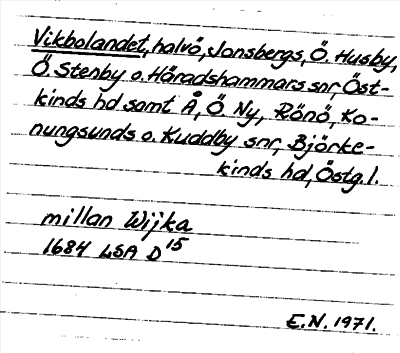 Vikbolandet, halvö, Jonsbergs, Ö. Husby,
Ö. Stenby o. Häradshammars snr, Öst-
kinds hd samt Å, Ö. Ny, Rönö, Ko-
nungsunds o. Kuddby snr, Björke-
kinds hd, Östg. l.
millan Wijka
1684 LSA D 15
E.N. 1971.